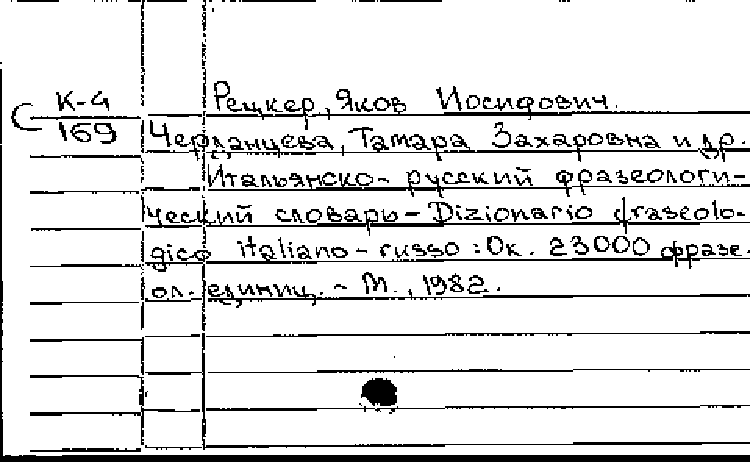 С К-4
169
Рецкер, Яков Иосифович.
Черданцева, Тамара Захаровна и др.
Итальянско-русский фразеологи-
ческий словарь - Dizionario fraseolo-
gico italiano-russo : Ок. 23000 фразе-
ол. единиц. - М., 1982.